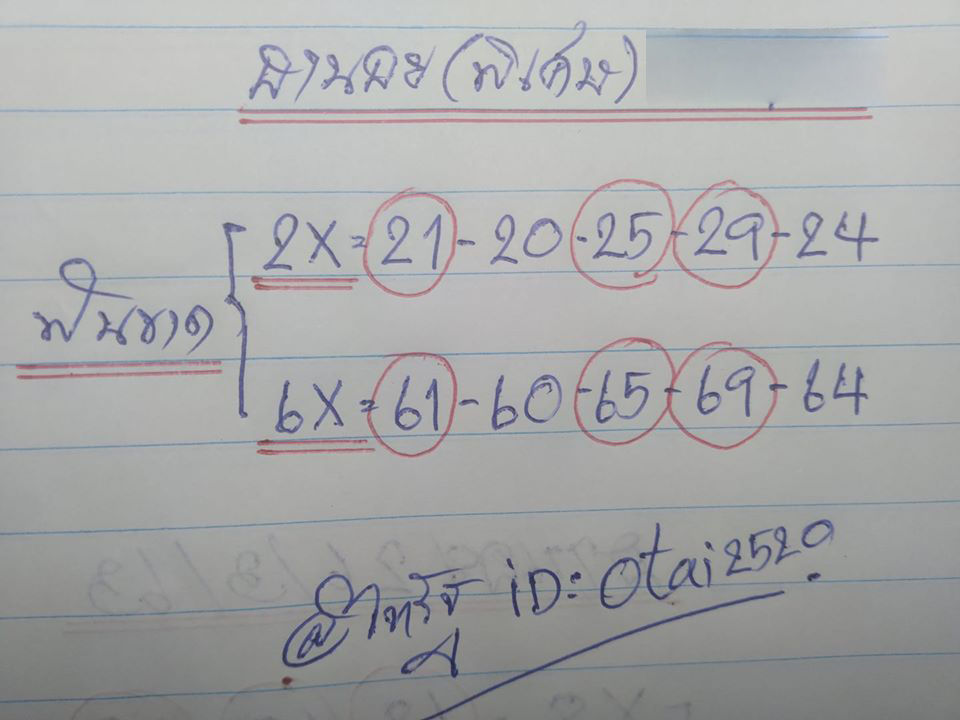 ฮานอย (พิเศษ)
ฟันขาด
2X = 21 - 20 - 25 - 29 - 24
6X = 61 - 60 - 65 - 69 - 64
iD: Otai2520